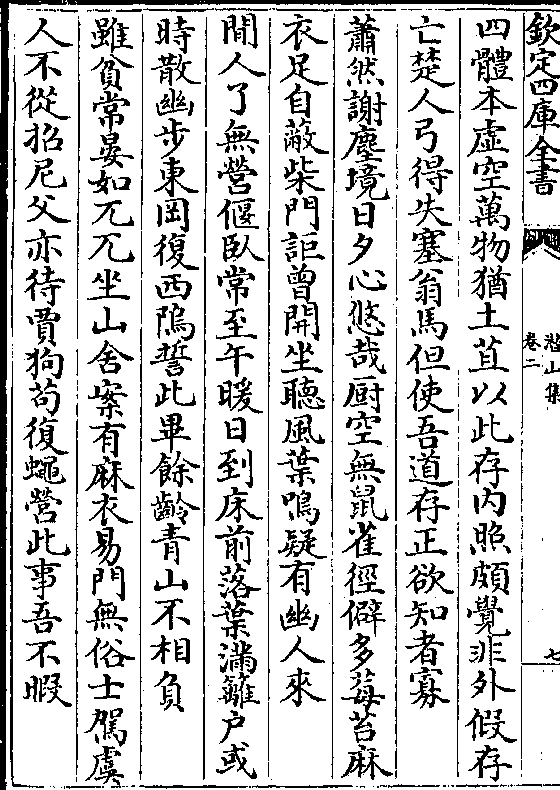 欽定四庫全書
卷二
七
四體本虛空萬物猶土苴以此存内照頗覺非外假存
亡楚人弓得失塞翁馬但使吾道存正欲知者寡
蕭然謝塵境日夕心悠哉厨空無鼠雀徑僻多莓苔麻
衣足自蔽柴門詎曾開坐聽風葉鳴疑有幽人來
閒人了無營偃臥常至午暖日到床前落葉滿籬户或
時散幽步東岡復西隖誓此畢餘齡青山不相負
雖貧常晏如兀兀坐山舍案有麻衣易門無俗士駕虞
人不從招尼父亦待賈狗苟復蠅營此事吾不暇